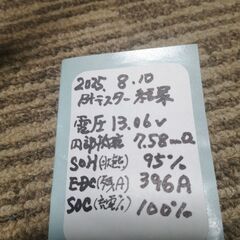 2025.8.10
Btテスター結果
電圧13.06v
内部抵抗 7.58mΩ
SOH(状態) 95%
EDC(残A) 396A
SOC(充電%) 100%